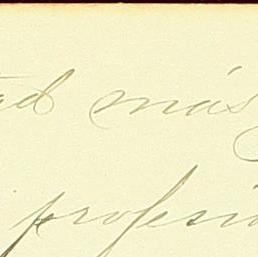 ad más
profesio